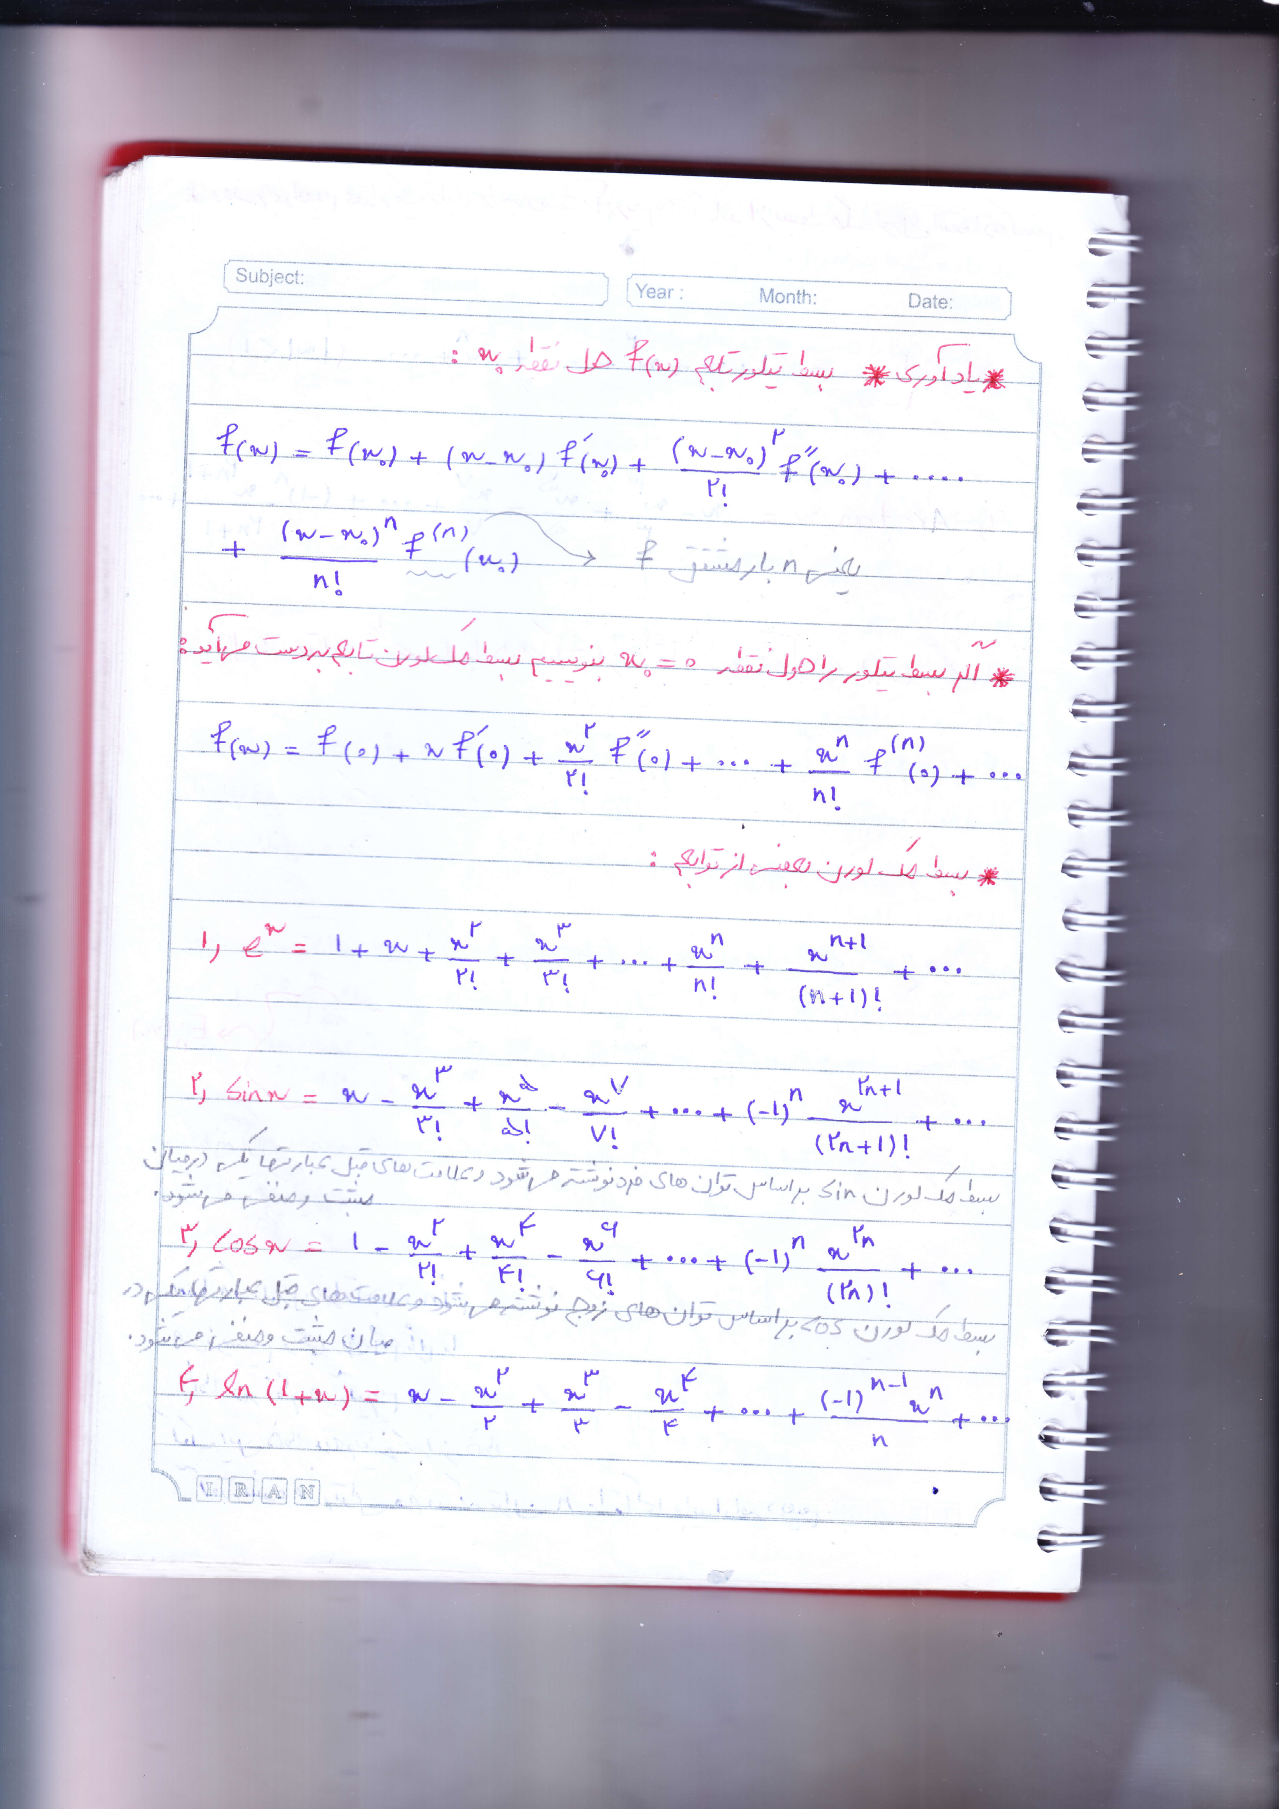 Subject:
Year : Month: Date:
* یادآوری * بسط تیلور تابع f(x) حول نقطه x₀ :
f(x) = f(x₀) + (x-x₀) f′(x₀) + (x-x₀)^۲/۲! f″(x₀) + ....
+ (x-x₀)^n/n! f^(n)(x₀) → یعنی n بار مشتق f
* اگر بسط تیلور را حول نقطه x₀ = 0 بنویسیم بسط مک لورن تابع بدست می‌آید:
f(x) = f(0) + x f′(0) + x^۲/۲! f″(0) + ... + x^n/n! f^(n)(0) + ...
* بسط مک لورن بعضی از توابع :
۱, e^x = 1 + x + x^۲/۲! + x^۳/۳! + ... + x^n/n! + x^(n+1)/(n+1)! + ...
۲, sin x = x - x^۳/۳! + x^۵/۵! - x^۷/۷! + ... + (-1)^n x^(۲n+1)/(۲n+1)! + ...
بسط مک لورن sin بر اساس توان های فرد نوشته می شود و علامت های قبل عبارتها یکی در میان
مثبت و منفی می شود.
۳, cos x = 1 - x^۲/۲! + x^۴/۴! - x^۶/۶! + ... + (-1)^n x^(۲n)/(۲n)! + ...
بسط مک لورن cos بر اساس توان های زوج نوشته می شود و علامت های قبل عبارتها یکی در
میان مثبت و منفی می شود.
۴, ln(1+x) = x - x^۲/۲ + x^۳/۳ - x^۴/۴ + ... + (-1)^(n-1) x^n/n + ...
IRAN